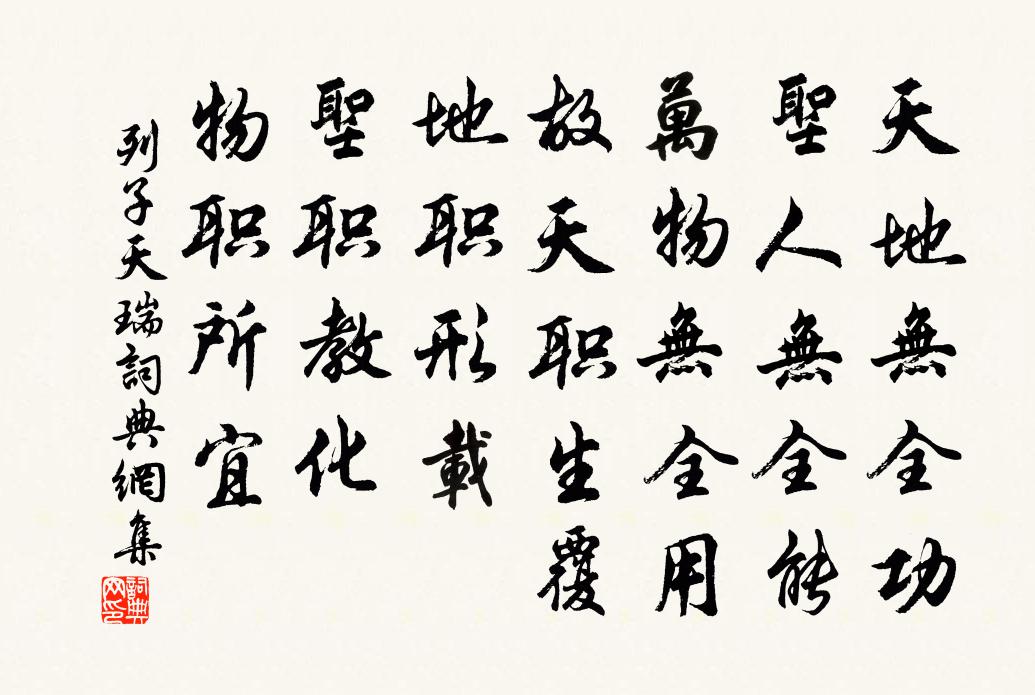 天地無全功
聖人無全能
萬物無全用
故天职生覆
地职形載
聖职教化
物职所宜
列子天瑞詞典網集
詞典網印